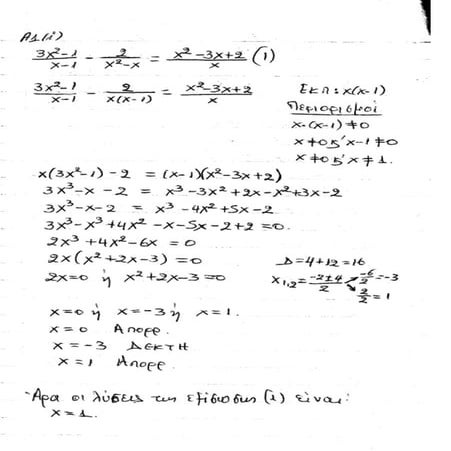 A1(i)
(3x²-1)/(x-1) - 2/(x²-x) = (x²-3x+2)/x (1)
(3x²-1)/(x-1) - 2/(x(x-1)) = (x²-3x+2)/x
ΕΚΠ: x(x-1)
Περιορισμοί
x·(x-1)≠0
x≠0 & x-1≠0
x≠0 & x≠1.
x(3x²-1)-2 = (x-1)(x²-3x+2)
3x³-x-2 = x³-3x²+2x-x²+3x-2
3x³-x-2 = x³-4x²+5x-2
3x³-x³+4x²-x-5x-2+2=0
2x³+4x²-6x=0
2x(x²+2x-3)=0
2x=0 ή x²+2x-3=0
Δ=4+12=16
x₁,₂=(-2±4)/2 -6/2=-3
2/2=1
x=0 ή x=-3 ή x=1.
x=0 Απορρ.
x=-3 ΔΕΚΤΗ
x=1 Απορρ.
Άρα οι λύσεις της εξίσωσης (1) είναι:
x=1.